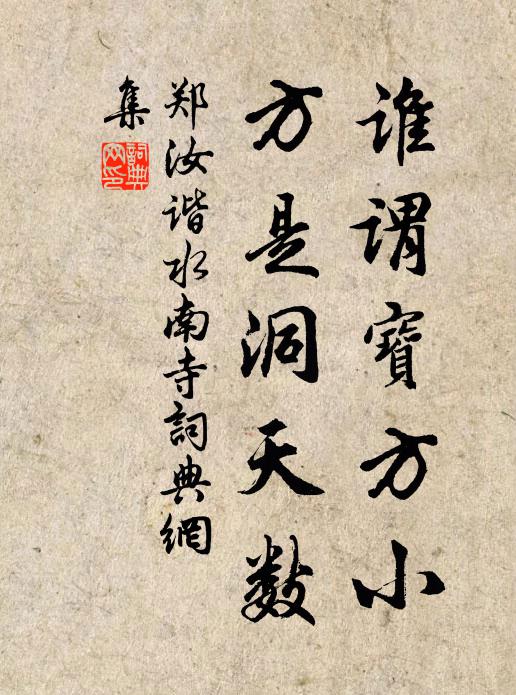 誰謂寶方小
方是洞天数
郑汝谐水南寺詞典網
集
詞典
网印